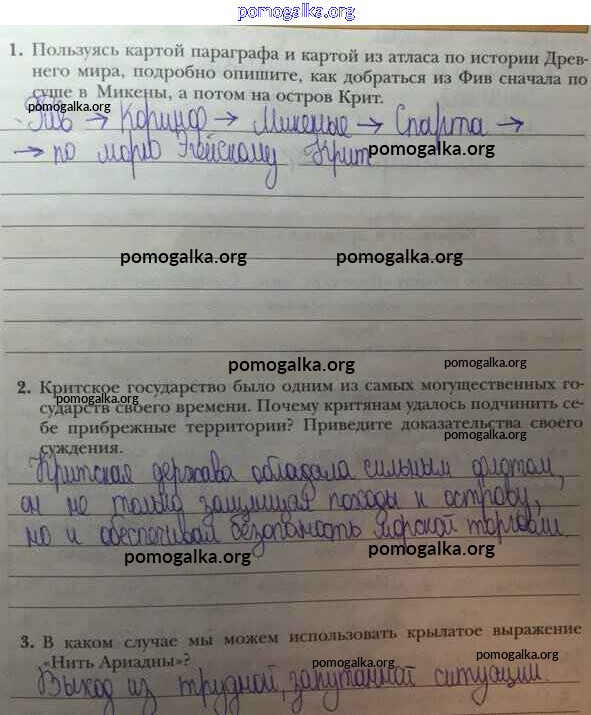 pomogalka.org
1. Пользуясь картой параграфа и картой из атласа по истории Древ-
него мира, подробно опишите, как добраться из Фив сначала по
суше в Микены, а потом на остров Крит.
pomogalka.org pomogalka.org
Фив → Коринф → Микены → Спарта →
→ по морю Эгейскому Крит pomogalka.org
pomogalka.org pomogalka.org
pomogalka.org pomogalka.org
2. Критское государство было одним из самых могущественных го-
pomogalka.org
сударств своего времени. Почему критянам удалось подчинить се-
бе прибрежные территории? Приведите доказательства своего
суждения. pomogalka.org pomogalka.org
Критская держава обладала сильным флотом,
он не только защищал походы к острову,
но и обеспечивал безопасность морской торговли.
pomogalka.org pomogalka.org
3. В каком случае мы можем использовать крылатое выражение
«Нить Ариадны»? pomogalka.org pomogalka.org
Выход из трудной, запутанной ситуации.
pomogalka.org